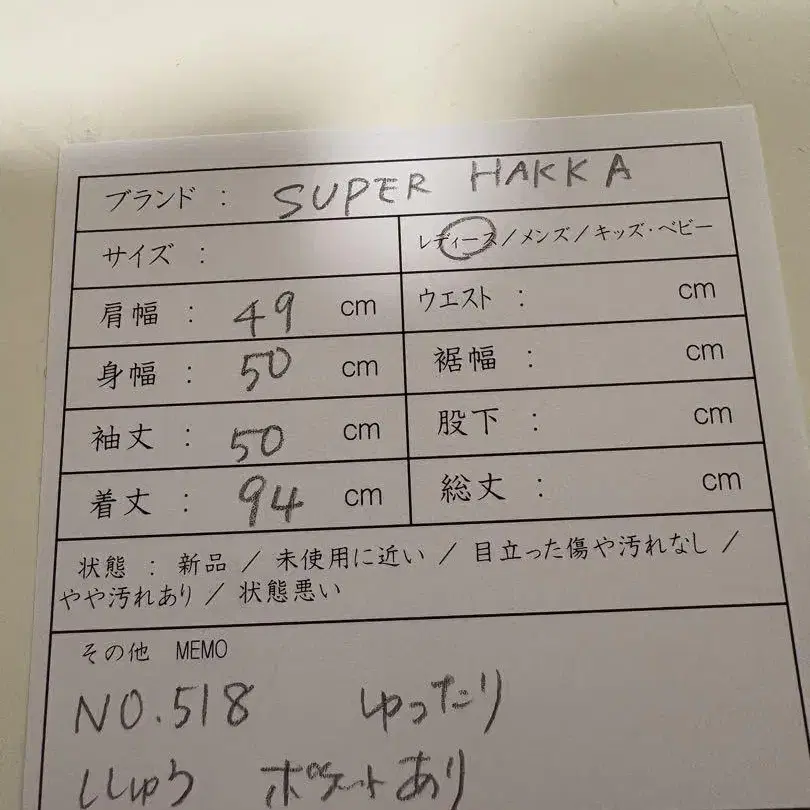 ブランド : SUPER HAKKA
サイズ : レディース/メンズ/キッズ・ベビー
肩幅 : 49 cm ウエスト : cm
身幅 : 50 cm 裾幅 : cm
袖丈 : 50 cm 股下 : cm
着丈 : 94 cm 総丈 : cm
状態 : 新品 / 未使用に近い / 目立った傷や汚れなし /
やや汚れあり / 状態悪い
その他 MEMO
NO.518 ゆったり
ししゅう ポケットあり